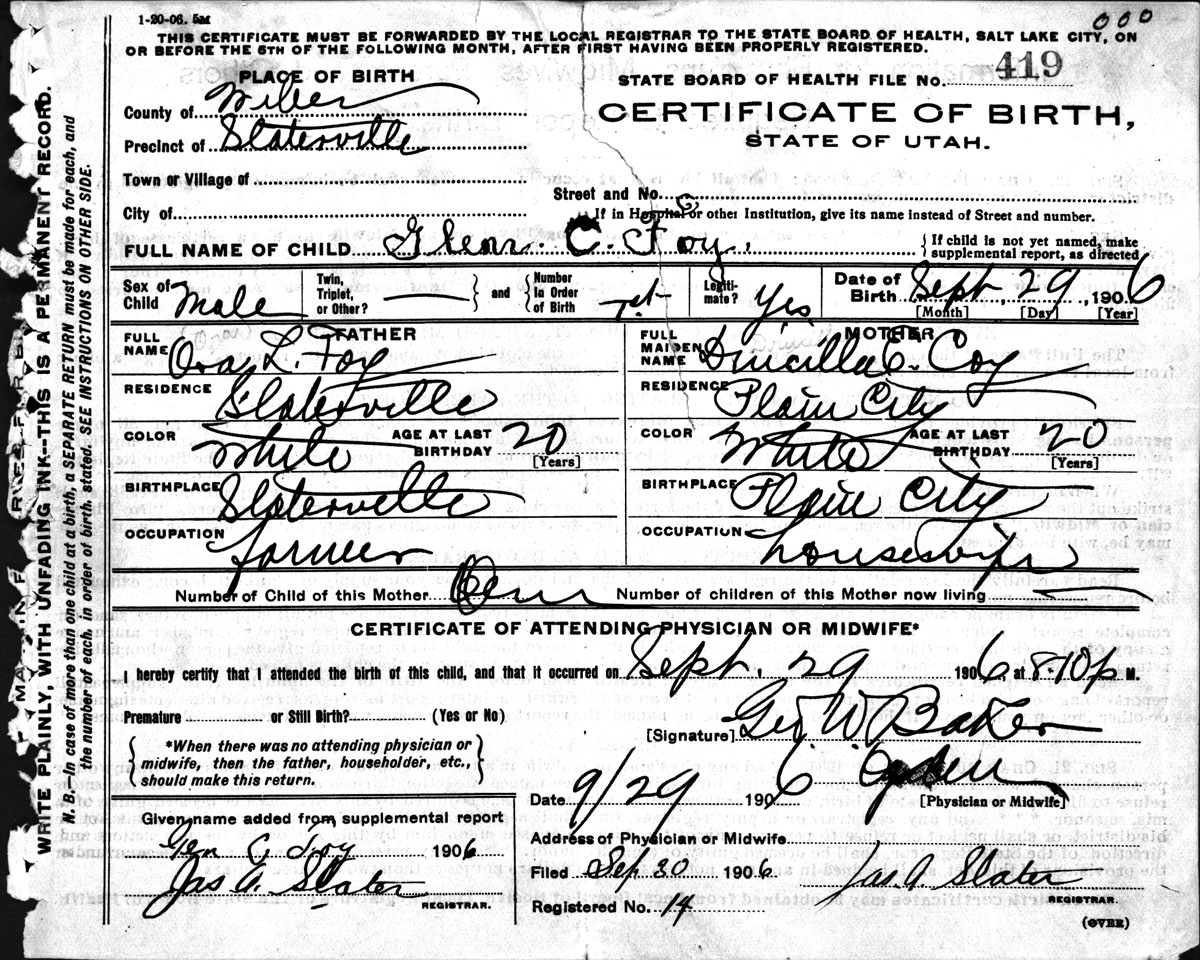 1-20-06. 5M
000
THIS CERTIFICATE MUST BE FORWARDED BY THE LOCAL REGISTRAR TO THE STATE BOARD OF HEALTH, SALT LAKE CITY, ON
OR BEFORE THE 5TH OF THE FOLLOWING MONTH, AFTER FIRST HAVING BEEN PROPERLY REGISTERED.
PLACE OF BIRTH
STATE BOARD OF HEALTH FILE No. 419
County of Weber
CERTIFICATE OF BIRTH,
Precinct of Slaterville
STATE OF UTAH.
Town or Village of
Street and No.
City of
If in Hospital or other Institution, give its name instead of Street and number.
FULL NAME OF CHILD Glenn C. Foy.
{ If child is not yet named, make
supplemental report, as directed
Sex of Child Male
Twin, Triplet, or Other?
and
Number In Order of Birth 1st
Legiti-mate? Yes
Date of Birth Sept, 29, 1906
[Month] [Day] [Year]
FATHER
FULL NAME Ora L. Foy
RESIDENCE Slaterville
COLOR White
AGE AT LAST BIRTHDAY 20
[Years]
BIRTHPLACE Slaterville
OCCUPATION farmer
MOTHER
FULL MAIDEN NAME Drucilla C. Coy
RESIDENCE Plain City
COLOR White
AGE AT LAST BIRTHDAY 20
[Years]
BIRTHPLACE Plain City
OCCUPATION housewife
Number of Child of this Mother One
Number of children of this Mother now living
CERTIFICATE OF ATTENDING PHYSICIAN OR MIDWIFE*
I hereby certify that I attended the birth of this child, and that it occurred on Sept. 29 1906 at 8:10 p M.
Premature or Still Birth? (Yes or No)
[Signature] Geo. W. Baker
*When there was no attending physician or
midwife, then the father, householder, etc.,
should make this return.
Date 9/29 1906
Ogden
[Physician or Midwife]
Given name added from supplemental report
Glen C Foy 1906
Jas A. Slater
REGISTRAR.
Address of Physician or Midwife
Filed Sep. 30 1906.
Jas. A. Slater
REGISTRAR.
Registered No. 14
(OVER)
MARGIN RESERVED FOR BINDING
WRITE PLAINLY, WITH UNFADING INK--THIS IS A PERMANENT RECORD.
N. B.--In case of more than one child at a birth, a SEPARATE RETURN must be made for each, and
the number of each, in order of birth, stated. SEE INSTRUCTIONS ON OTHER SIDE.